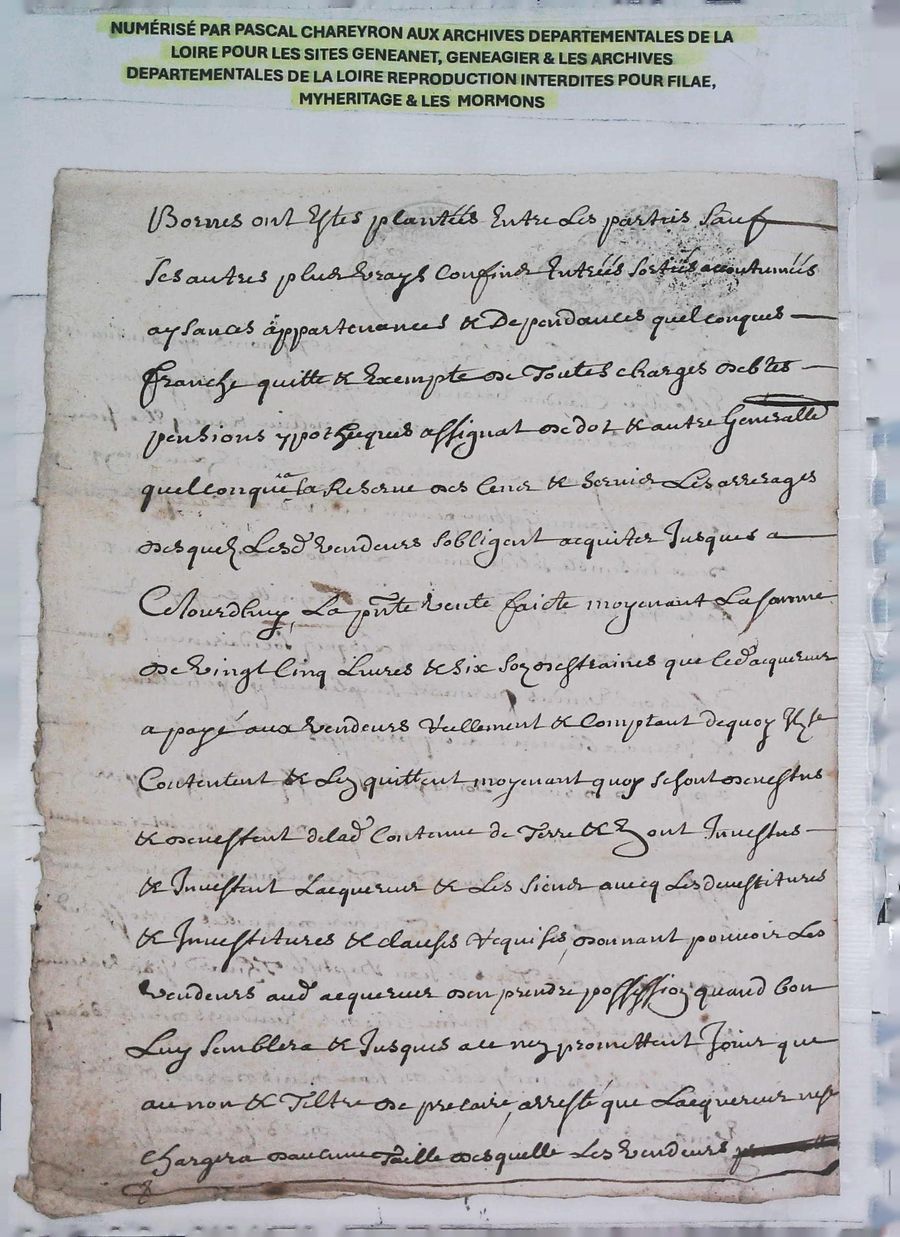 NUMÉRISÉ PAR PASCAL CHAREYRON AUX ARCHIVES DEPARTEMENTALES DE LA
LOIRE POUR LES SITES GENEANET, GENEAGIER & LES ARCHIVES
DEPARTEMENTALES DE LA LOIRE REPRODUCTION INTERDITES POUR FILAE,
MYHERITAGE & LES MORMONS
Bornes ont Estes plantéés Entre Les parties Sauf
Ses autres plus vrays Confins Entréés Sortiés acoutuméés
aysances appartenances & Dependances quelconques
franche quitte & Exempte de Toutes charges debtes
pensions ypotheques assignat de dot & autre Generalle
quelconque a la Reserve des Cens & Servis Les arrerages
desquelz Lesd vendeurs sobligent acquiter Jusques a
Cejourdhuy, La pnte vente faicte moyenant La somme
de vingt Cinq Livres & six solz destraines que led acquereur
a payé aux vendeurs réellement & Comptant dequoy Ilz se
Contentent & Lez quittent moyenant quoy se sont devestus
& devestent delad Contenue de Terre & En ont Investus
& Investent Lacquereur & Les Siens avecq Les devestitures
& Investitures & clauses requises, donnant pouvoir Les
vendeurs aud acquereur den prendre possession quand bon
Luy Semblera & Jusques a ce nez promettent Jouir que
au non & Tiltre de precaire, arresté que Lacquereur nese
Chargera daucune Taille desquelle Les vendeurs